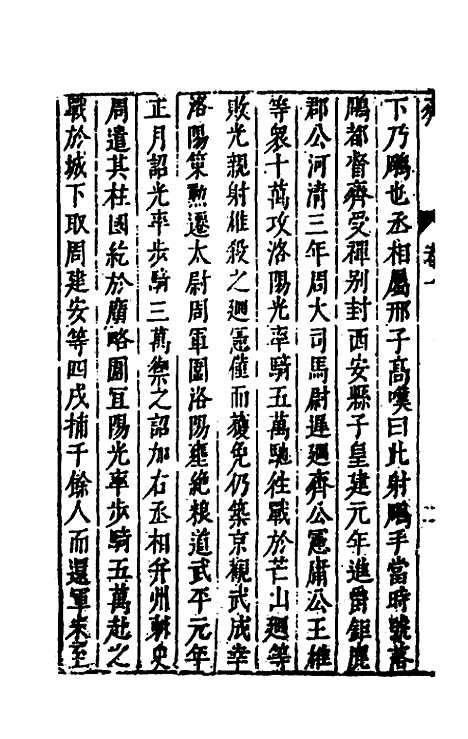 下乃鵰也丞相屬邢子高嘆曰此射鵰手當時號落
鵰都督齊受禪别封西安縣子皇建元年進爵鉅鹿
郡公河清三年周大司馬尉遲迥齊公憲庸公王雄
等衆十萬攻洛陽光率騎五萬馳往戰於芒山迥等
敗光親射雄殺之迥憲僅而獲免仍築京觀武成幸
洛陽策勲遷太尉周軍圍洛陽壅絶粮道武平元年
正月詔光率步騎三萬禦之詔加右丞相并州刺史
周遣其柱國紇於廣略圍冝陽光率步騎五萬赴之
戰於城下取周建安等四戍捕千餘人而還軍未至